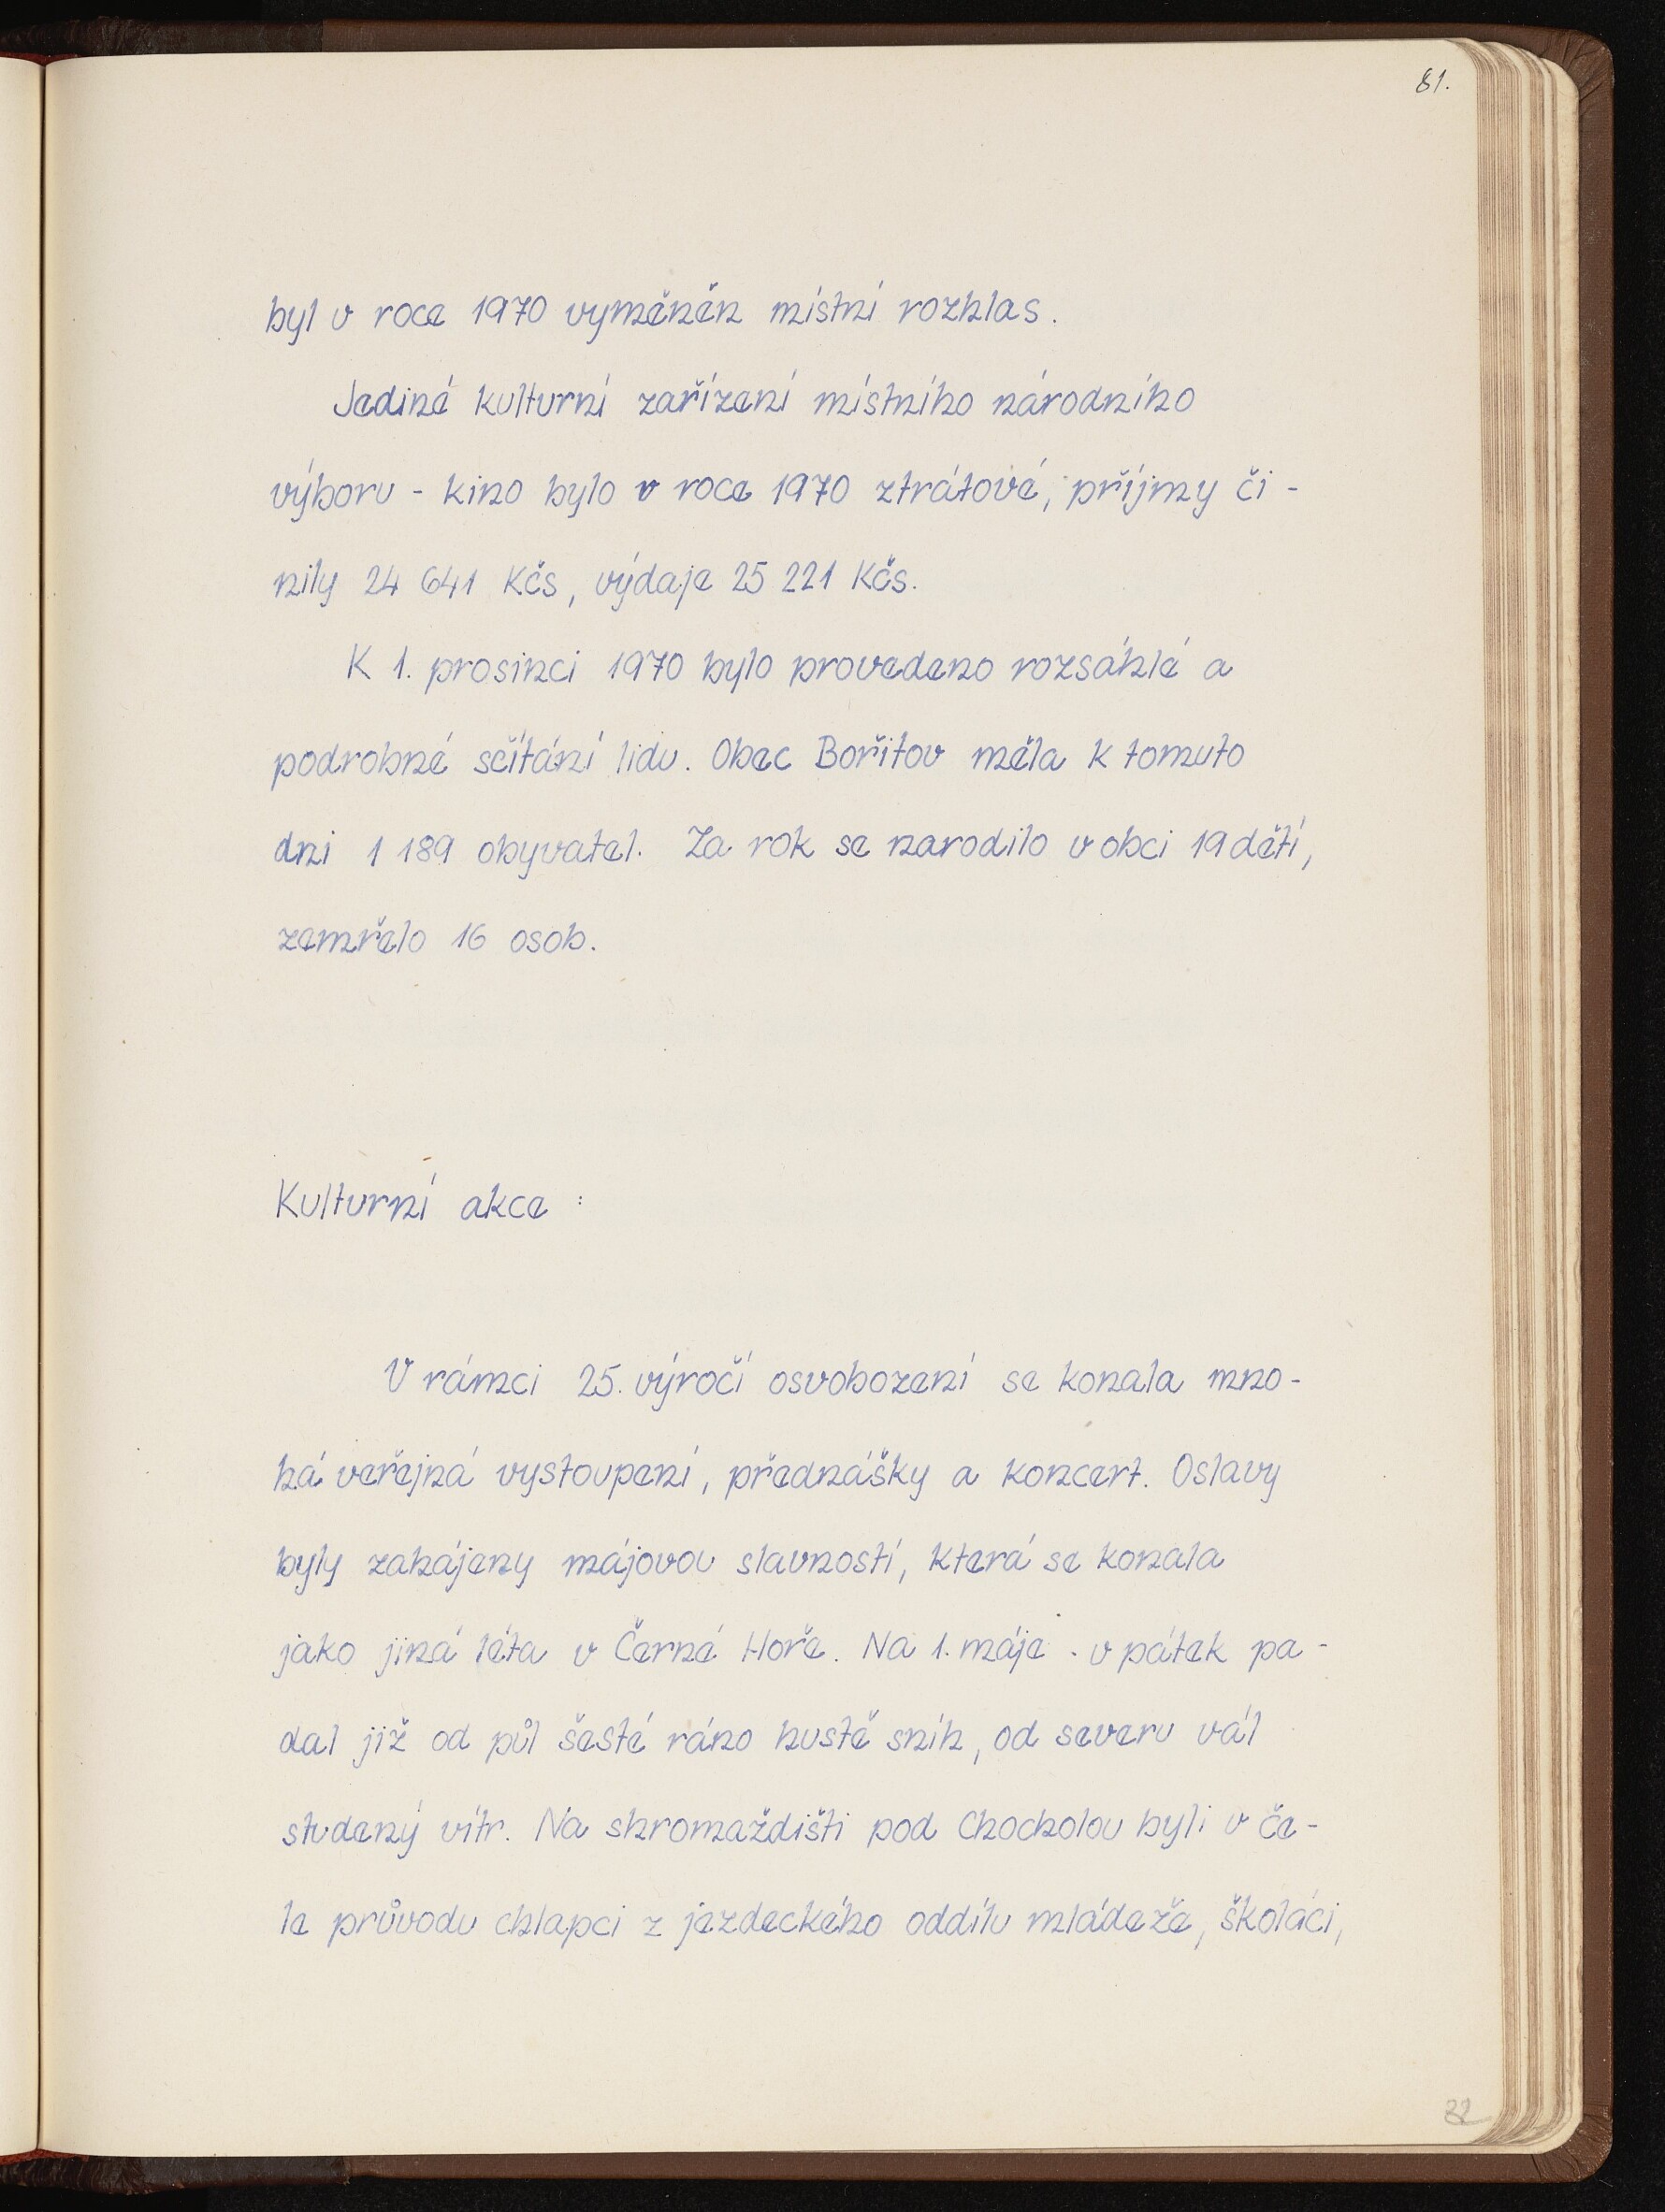 81.
byl v roce 1970 vyměněn místní rozhlas.
Jediné kulturní zařízení místního národního
výboru - kino bylo v roce 1970 ztrátové, příjmy či-
nily 24 641 Kčs, výdaje 25 221 Kčs.
K 1. prosinci 1970 bylo provedeno rozsáhlé a
podrobné sčítání lidu. Obec Bořitov měla k tomuto
dni 1 189 obyvatel. Za rok se narodilo v obci 19 dětí,
zemřelo 16 osob.
Kulturní akce :
V rámci 25. výročí osvobození se konala mno-
há veřejná vystoupení, přednášky a koncert. Oslavy
byly zahájeny májovou slavností, která se konala
jako jiná léta v Černé Hoře. Na 1. máje - v pátek pa-
dal již od půl šesté ráno hustě sníh, od severu vál
studený vítr. Na shromaždišti pod Chocholou byli v če-
le průvodu chlapci z jezdeckého oddílu mládeže, školáci,
32